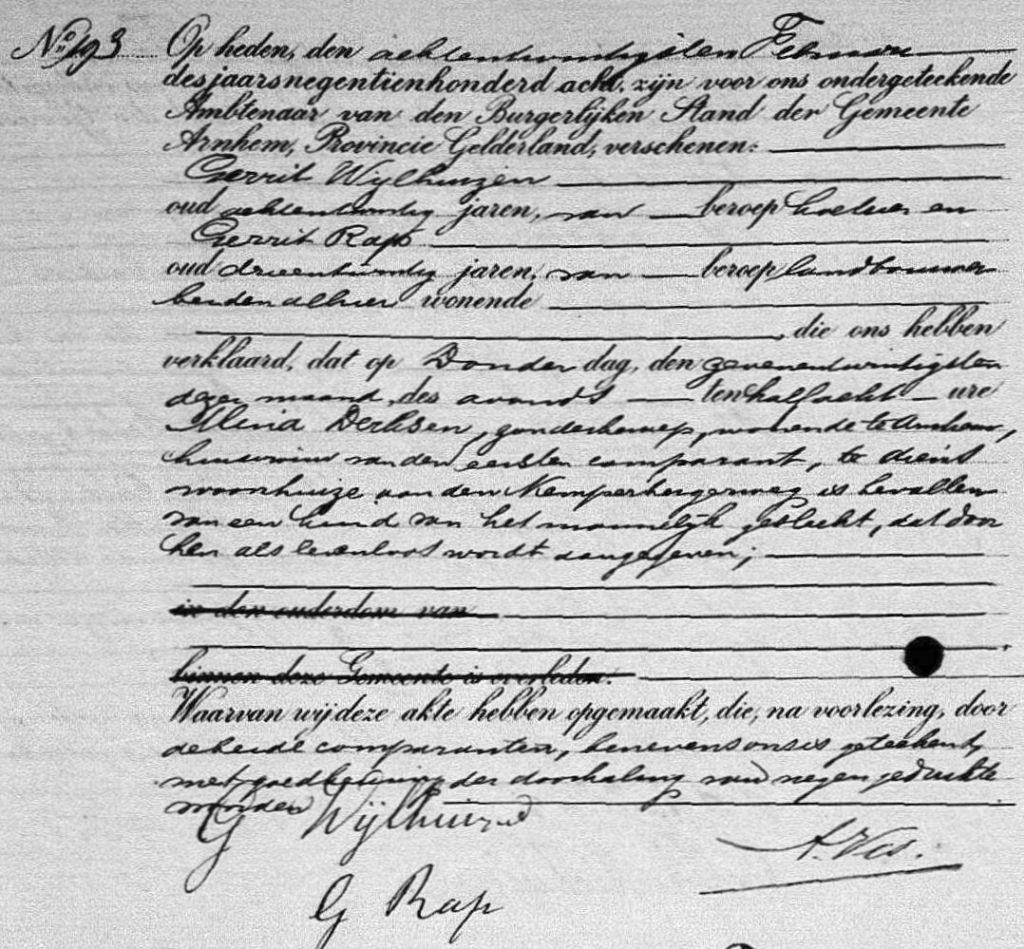 No 193 Op heden, den achtentwintigsten Februari
des jaars negentienhonderd acht, zijn voor ons ondergeteekende
Ambtenaar van den Burgerlijken Stand der Gemeente
Arnhem, Provincie Gelderland, verschenen:
Gerrit Wijlhuizen
oud achtentwintig jaren, van beroep koetsier en
Gerrit Rap
oud drieentwintig jaren, van beroep landbouwer
beiden alhier wonende
, die ons hebben
verklaard, dat op Donder dag, den zevenentwintigsten
dezer maand, des avonds ten half acht ure
Derksen, zonder beroep, wonende te Arnhem,
huisvrouw van den eersten comparant, te diens
woonhuize aan den Kemperbergerweg is bevallen
van een kind van het mannelijk geslacht, dat door
hen als levenloos wordt aangegeven;
in den ouderdom van
binnen deze Gemeente is overleden.
Waarvan wij deze akte hebben opgemaakt, die, na voorlezing, door
de beide comparanten, benevens ons is geteekend,
met goedkeuring der doorhaling van negen gedrukte
woorden
G Wijlhuizen
A. Vos.
G Rap